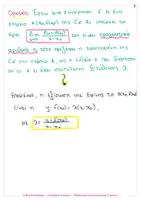 Ορισμός: Έστω μια συνάρτηση f και ένα
σημείο A(x₀, f(x₀)) της Cf. Αν υπάρχει το
όριο lim f(x)-f(x₀) / x-x₀ και είναι πραγματικός
αριθμός λ, τότε ορίζουμε ως εφαπτομένη της
Cf στο σημείο A, την ευθεία ε που διέρχεται
από το A και έχει συντελεστή διεύθυνσης λ.
Επομένως, η εξίσωση της εφαπτομένης στο A(x₀, f(x₀))
είναι η y-f(x₀)=λ(x-x₀),
με λ= lim f(x)-f(x₀) / x-x₀